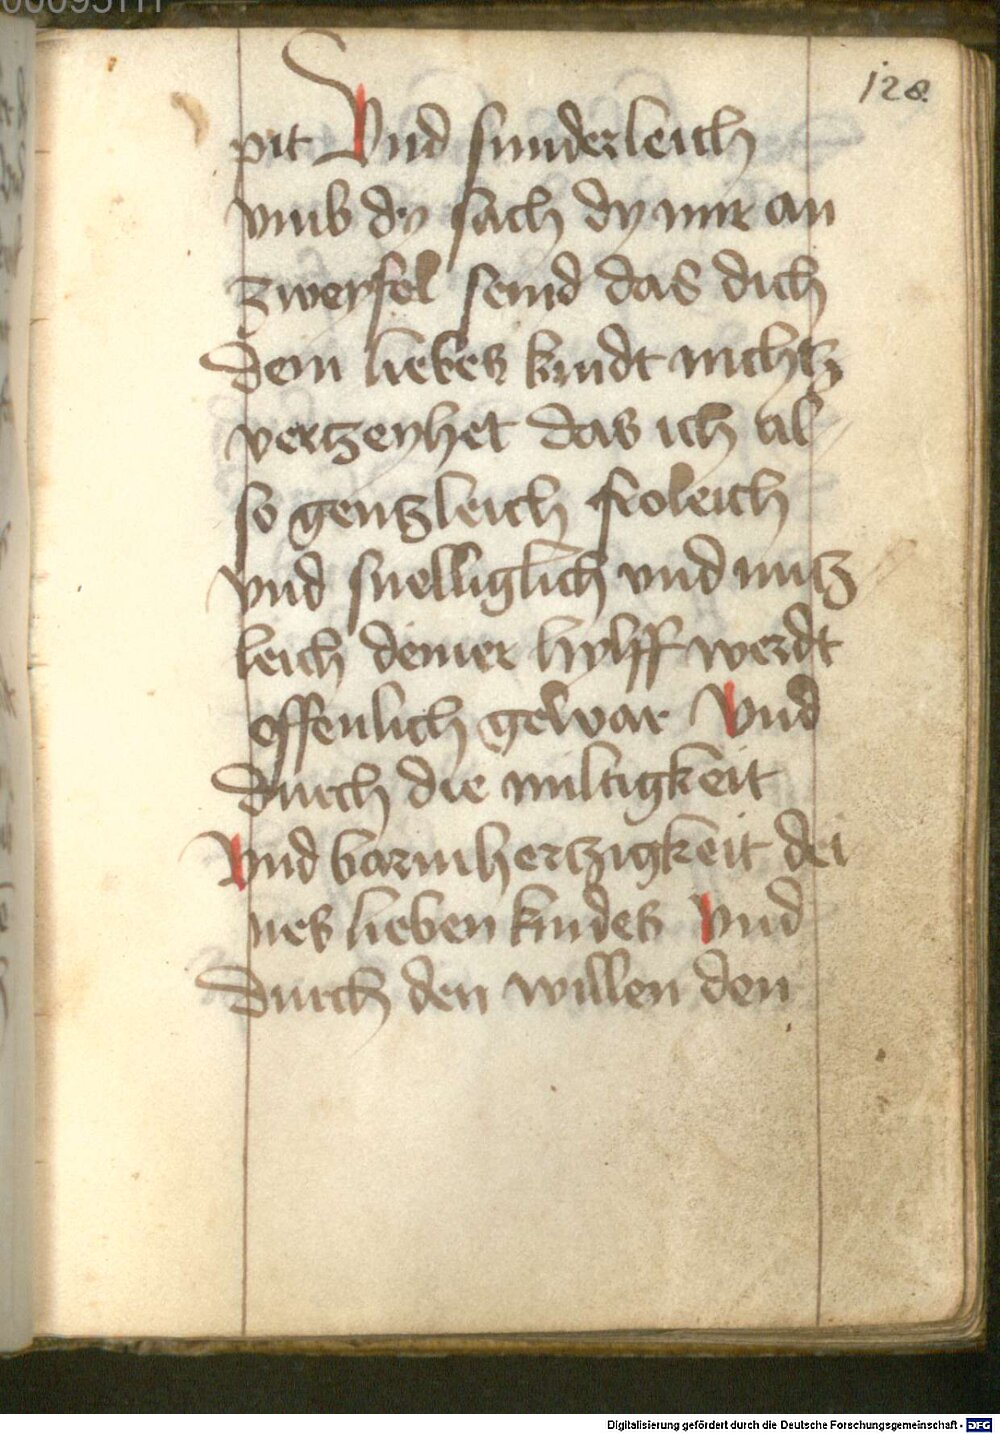 00095111
128
pit Vnd sunderleich
vmb dy sach dy mir an
zweyfel seind das dich
dein liebes kindt nichtz
vertzeyhet das ich al
so gentzleich froleich
vnd snelliglich vnd nutz
leich deiner hylff werdt
offenlich gewar Vnd
durch die miltigkeit
Vnd barmhertzigkeit dei
nes lieben kindes Vnd
durch den willen den
Digitalisierung gefördert durch die Deutsche Forschungsgemeinschaft - DFG